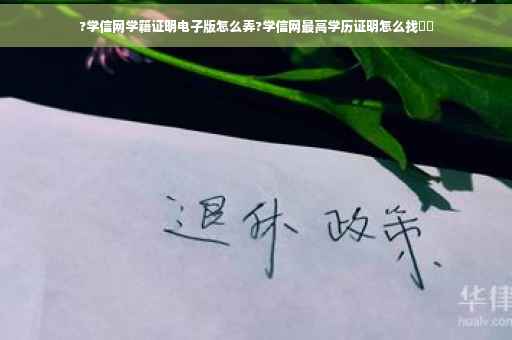 ?学信网学籍证明电子版怎么弄?学信网最高学历证明怎么找
退休 政策
华律
hualv.com